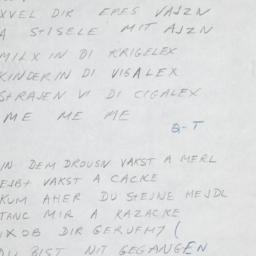 XVEL DIR EPES VAJZN
A STISELE MIT AJZN
MILX IN DI KRIGELEX
KINDER IN DI VIGALEX
STRAJEN VI DI CIGALEX
ME ME ME
G-T
IN DEM DROUSN VAKST A MERL
EJBT VAKST A CACKE
KUM AHER DU STEJNE MEJDL
TANC MIR A KAZACKE
IXOB DIR GERUFMY (
DU BIST NIT GEGANGEN